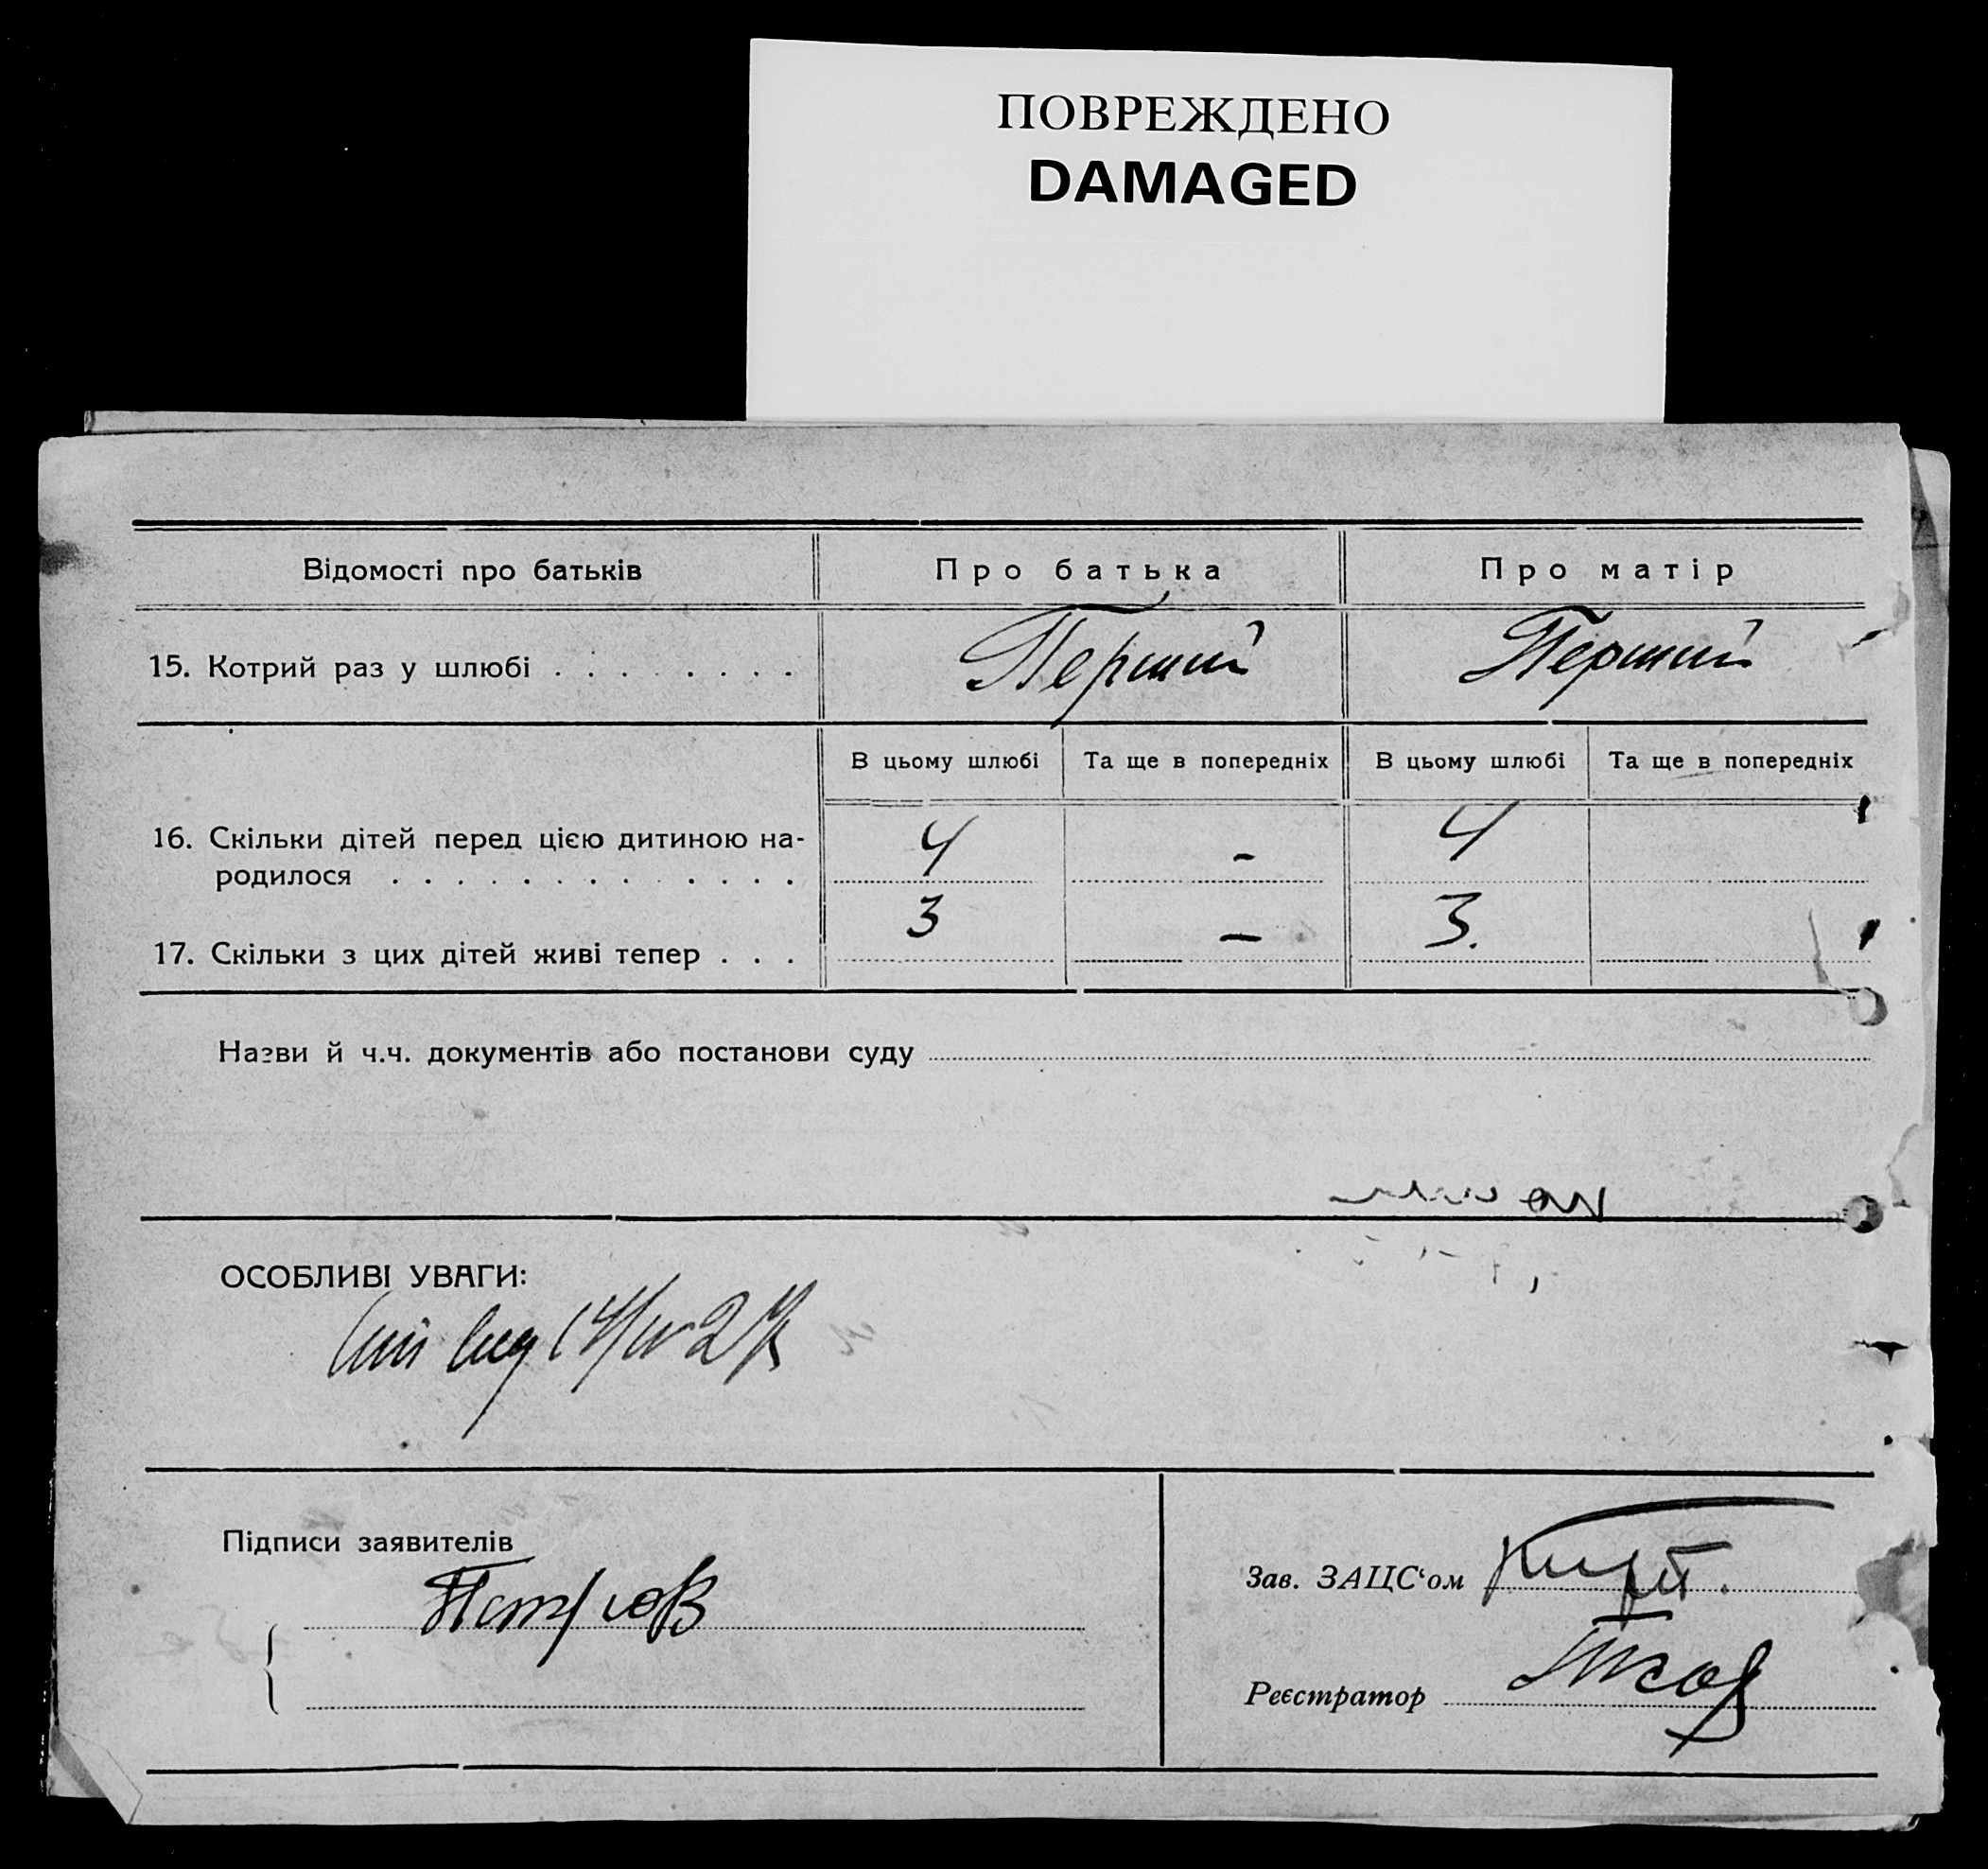 ПОВРЕЖДЕНО
DAMAGED
Відомості про батьків
Про батька
Про матір
15. Котрий раз у шлюбі . . . . . . . .
Перший
Перший
В цьому шлюбі
Та ще в попередніх
В цьому шлюбі
Та ще в попередніх
16. Скільки дітей перед цією дитиною на-
родилося . . . . . . . . . . . . .
4
-
4
17. Скільки з цих дітей живі тепер . . .
3
-
3.
Назви й ч.ч. документів або постанови суду
ОСОБЛИВІ УВАГИ:
Підписи заявителів
Зав. ЗАЦС‘ом
Реєстратор